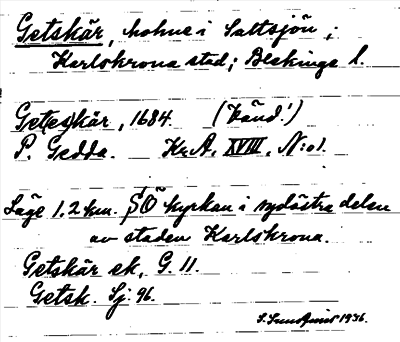 Getskär, holme i Saltsjön;
Karlskrona stad; Blekinge l.
Get(e)skär, 1684. (Känd!)
P. Gedda. Kr. A. XVIII, N:o 1.
Läge 1.2 km. SO kyrkan i sydöstra delen
av staden Karlskrona.
Getskär ek. G. 11.
Getsk. Sj. 96.
1936.